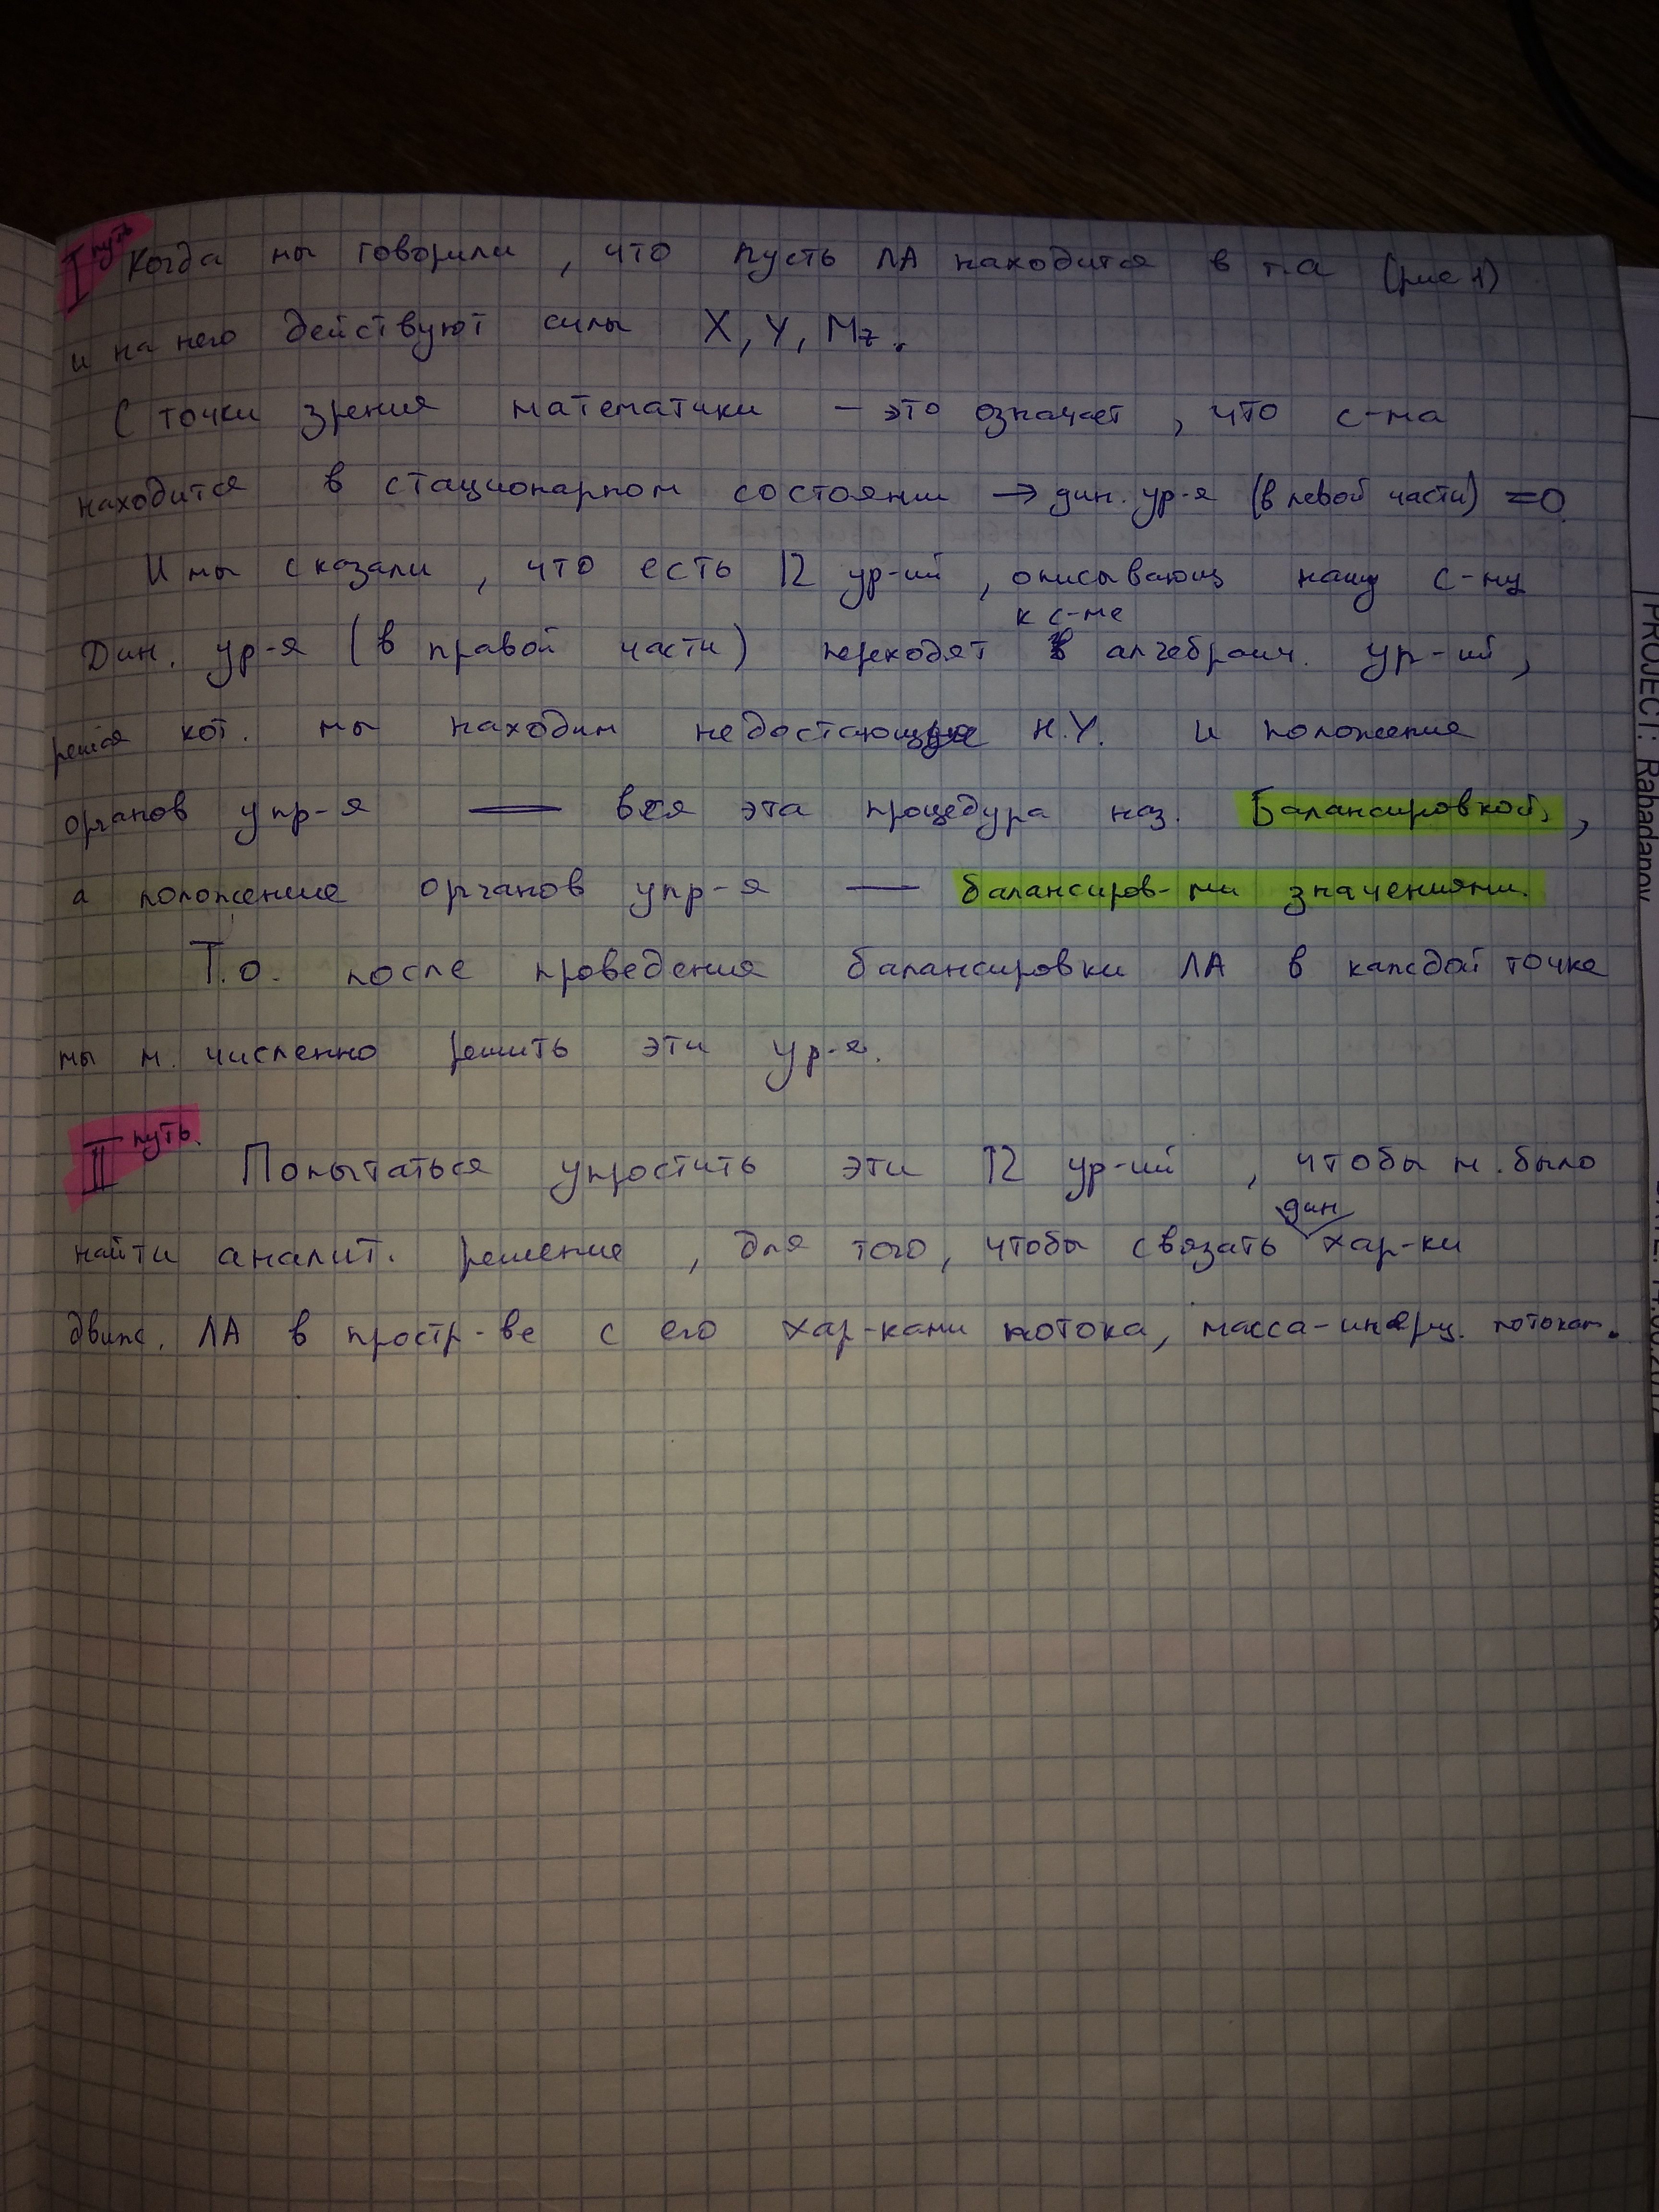 I путь Когда мы говорили, что пусть ЛА находится в т.а (рис 1)
и на него действуют силы X, Y, Mz.
С точки зрения математики – это означает, что с-ма
находится в стационарном состоянии → дин. ур-я (в левой части) =0
И мы сказали, что есть 12 ур-ий, описывающ нашу с-му
к с-ме
Дин. ур-я (в правой части) переходят алгебраич. ур-ий,
решая кот. мы находим недостающие Н.У. и положение
органов упр-я — вся эта процедура наз. Балансировкой,
а положение органов упр-я — балансиров-ми значениями.
Т.о. после проведения балансировки ЛА в каждой точке
мы м. численно решить эти ур-я.
II путь. Попытаться упростить эти 12 ур-ий, чтобы м. было
дин
найти аналит. решение, для того, чтобы связать хар-ки
движ. ЛА в простр-ве с его хар-ками потока, масса-инерц.
PROJECT: Rabadanov